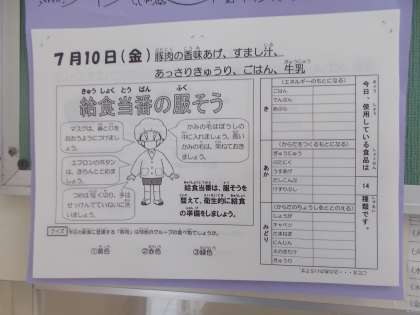 7月10日(金)
豚肉の香味あげ、すまし汁、
あっさりきゅうり、ごはん、牛乳
きゅう しょく とう ばん ふく
給食当番の服そう
マスクは、鼻と口を
おおうようにつけまし
ょう。
かみの毛はぼうしの
中に入れましょう。長い
かみの毛は、
エプロンのボタン
は、きちんととめま
しょう。
つめは短く切り、手は
せっけんでていねいに洗
いましょう。
給食当番は、服そうを
整えて、衛生的に給食
の準備をしましょう。
クイズ
①黄色
②赤色
③緑色
今日、使用している食品は
14
種類です。
(エネルギーのもとになる)
き
ごはん
でんぷん
あぶら
(からだをつくるもとになる)
あか
ぎゅうにゅう
ぶたにく
うずまき
だしこんぶ
けずりぶし
(からだのちょうしをととのえる)
みどり
しょうが
キャベツ
たまねぎ
にんじん
えのきたけ
きゅうり